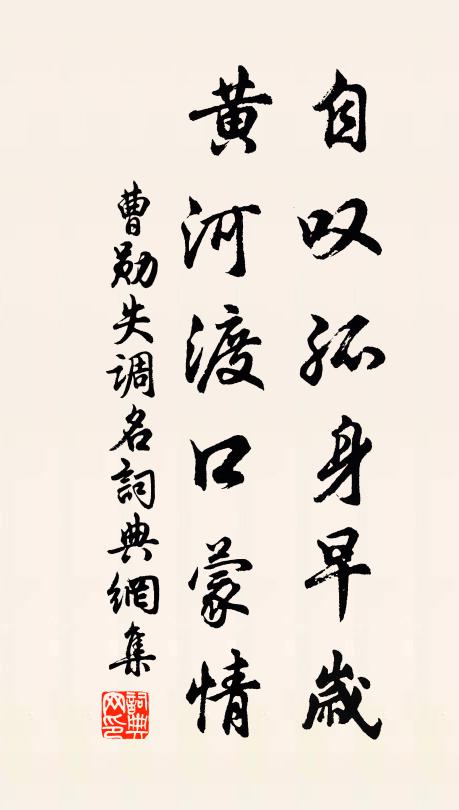 自叹孤身早歲
黄河渡口蒙情
曹勋失调名詞典網集
詞典网印